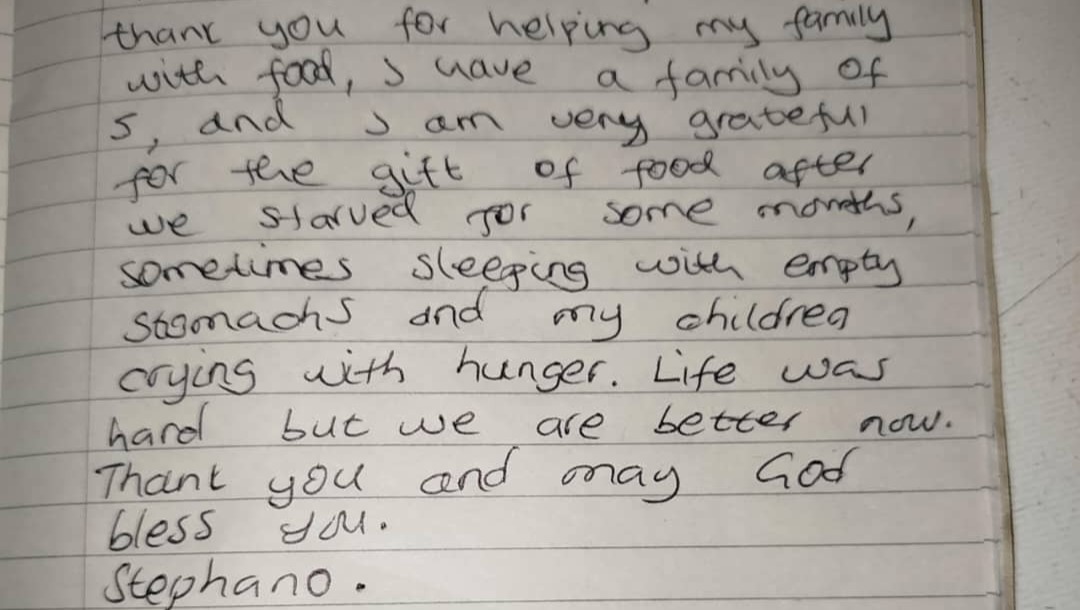 thank you for helping my family
with food, I have a family of
5, and I am very grateful
for the gift of food after
we starved for some months,
sometimes sleeping with empty
stomachs and my children
crying with hunger. Life was
hard but we are better now.
Thank you and may God
bless you.
Stephano.